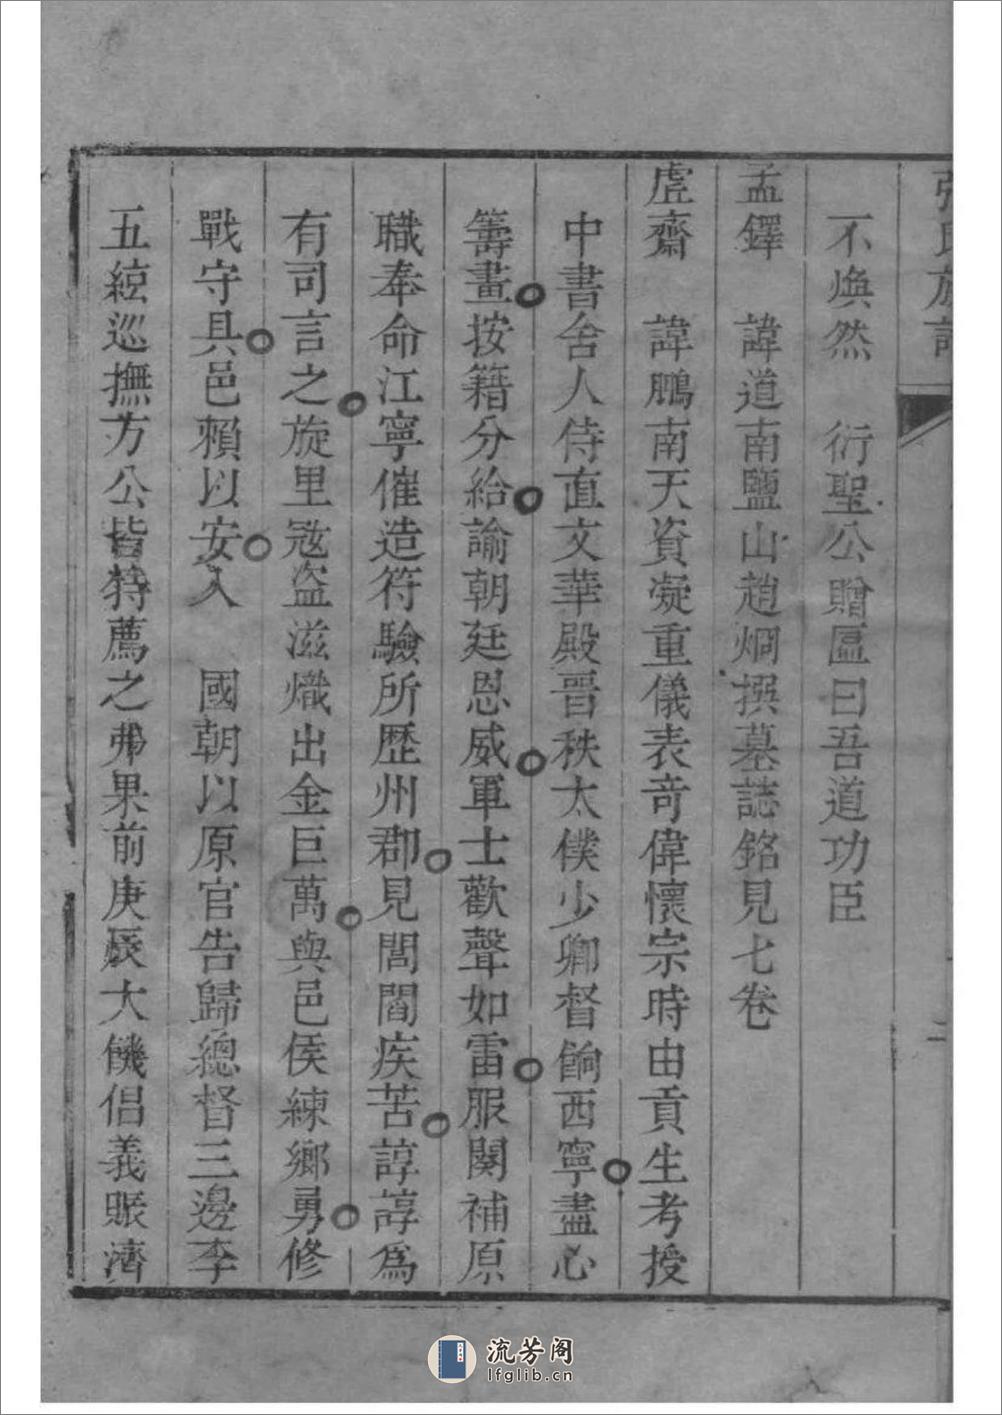 張氏族譜
不煥然 衍聖公贈匾曰吾道功臣
孟鐸 諱道南鹽山趙炯撰墓誌銘見七卷
虛齋 諱鵬南天資凝重儀表奇偉懷宗時由貢生考授
中書舍人侍直文華殿晉秩太僕少卿督餉西寧盡心
籌畫按籍分給諭朝廷恩威軍士歡聲如雷服闋補原
職奉命江寧催造符驗所歷州郡見閭閻疾苦諄諄爲
有司言之旋里寇盜滋熾出金巨萬與邑侯練鄉勇修
戰守具邑賴以安入 國朝以原官告歸總督三邊李
五綋巡撫方公皆特薦之弗果前庚辰大饑倡義賑濟
流芳阁
lfglib.cn